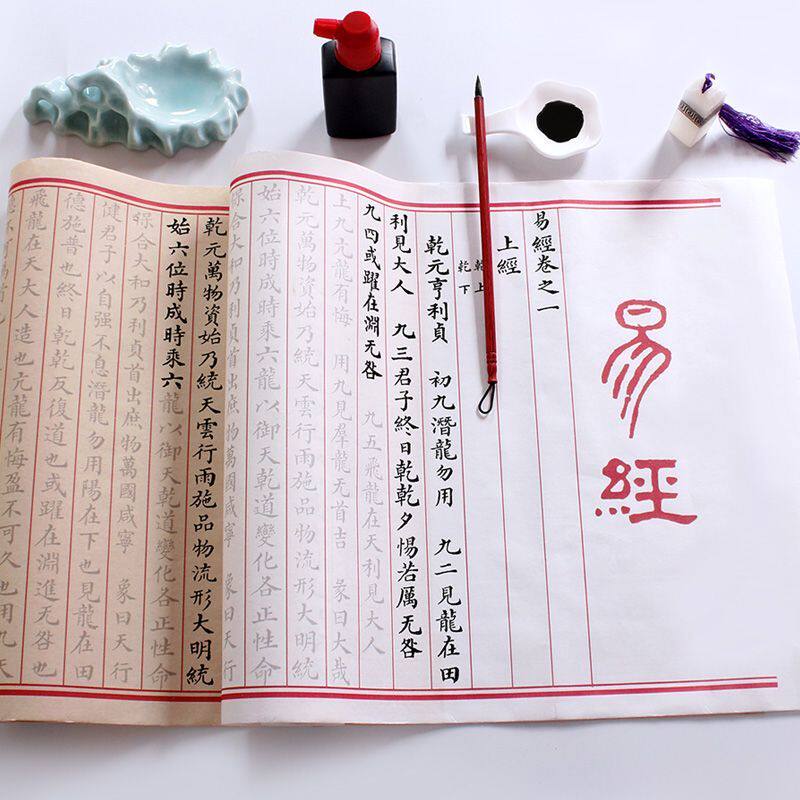 易經
易經卷之一
上經
乾上
乾下
乾元亨利貞 初九潛龍勿用 九二見龍在田
利見大人 九三君子終日乾乾夕惕若厲无咎
九四或躍在淵无咎 九五飛龍在天利見大人
上九亢龍有悔 用九見羣龍无首吉 彖曰大哉
乾元萬物資始乃統天雲行雨施品物流形大明統
始六位時成時乘六龍以御天乾道變化各正性命
保合大和乃利貞首出庶物萬國咸寧 象曰天行
乾元萬物資始乃統天雲行雨施品物流形大明統
始六位時成時乘六龍以御天乾道變化各正性命
保合大和乃利貞首出庶物萬國咸寧 象曰天行
健君子以自强不息潛龍勿用陽在下也見龍在田
德施普也終日乾乾反復道也或躍在淵進无咎也
飛龍在天大人造也亢龍有悔盈不可久也用九天